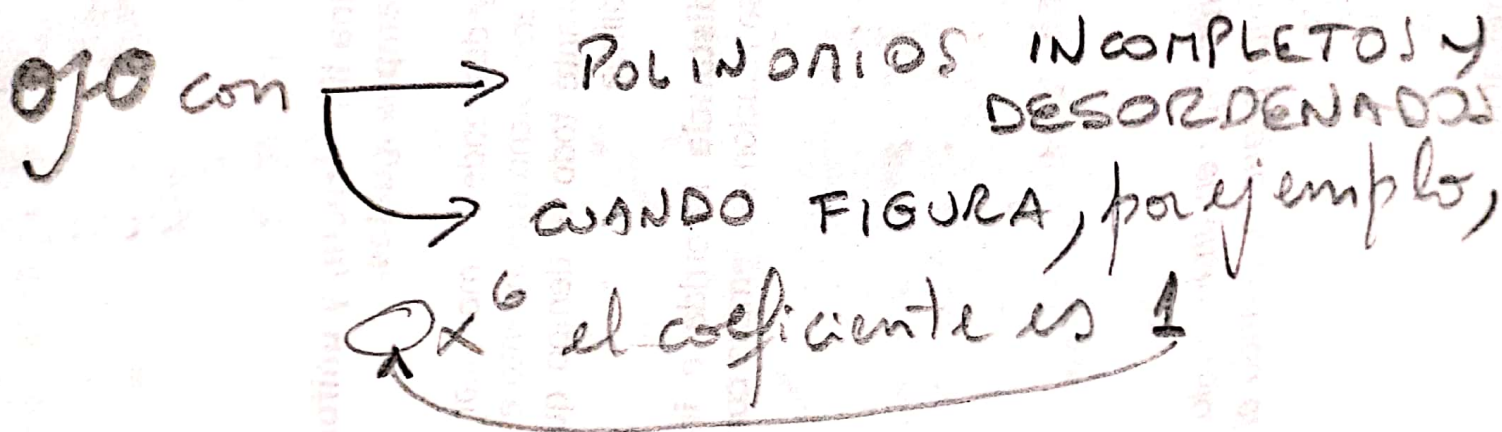 OJO con → POLINOMIOS INCOMPLETOS Y
DESORDENADOS
→ CUANDO FIGURA, por ejemplo,
x⁶ el coeficiente es 1